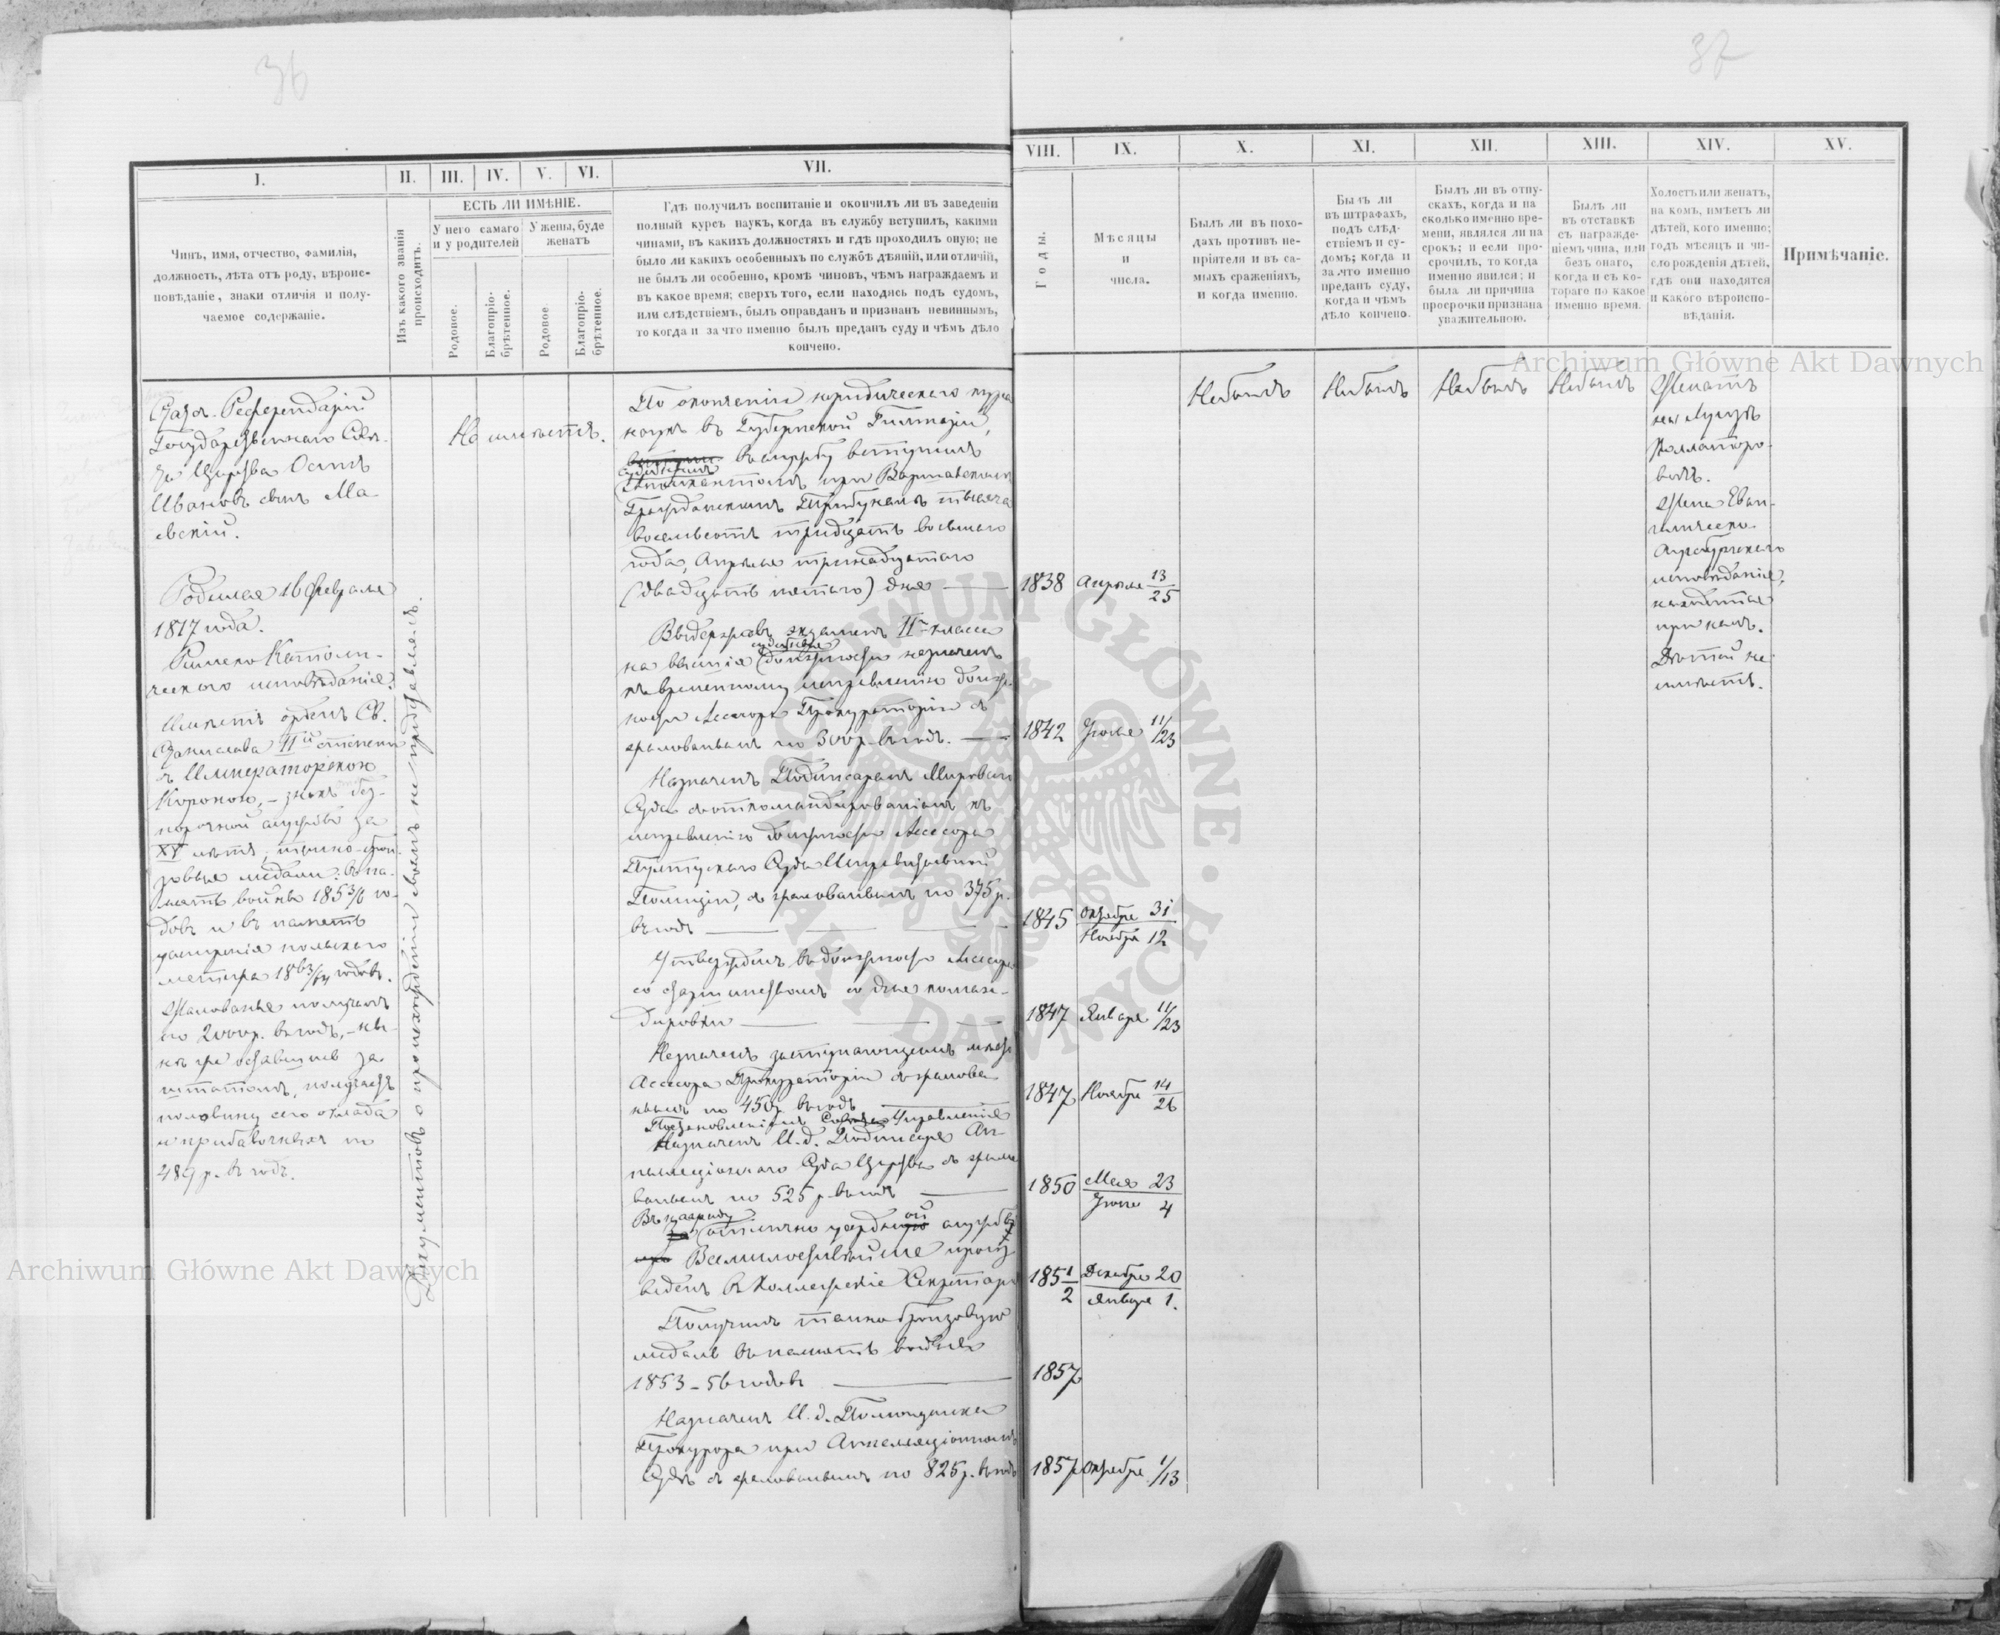 36
I.
II.
III.
IV.
V.
VI.
VII.
ЕСТЬ ЛИ ИМѢНІЕ.
Чинъ, имя, отчество, фамилія,
должность, лѣта отъ роду, вѣроис-
повѣданіе, знаки отличія и полу-
чаемое содержаніе.
Изъ какого званія
происходитъ.
У него самаго
и у родителей
У жены, буде
женатъ
Родовое.
Благопріо-
брѣтенное.
Родовое
Благопріо-
брѣтенное.
Гдѣ получилъ воспитаніе и окончилъ ли въ заведеніи
полный курсъ наукъ, когда въ службу вступилъ, какими
чинами, въ какихъ должностяхъ и гдѣ проходилъ оную; не
было ли какихъ особенныхъ по службѣ дѣяній, или отличій,
не былъ ли особенно, кромѣ чиновъ, чѣмъ награждаемъ и
въ какое время; сверхъ того, если находясь подъ судомъ,
или слѣдствіемъ, былъ оправданъ и признанъ невиннымъ,
то когда и за что именно былъ преданъ суду и чѣмъ дѣло
кончено.
Референдарій
Государственнаго Совѣ-
та Царства Осипъ
Ивановъ сынъ Ма-
евскій.
Родился 16 Февраля
1817 года.
Римско Католи-
ческаго исповѣданія.
Имѣетъ орденъ Св.
Станислава IIй степени
съ Императорскою
Короною, – знакъ без-
порочной службы за
XV лѣтъ, темно-брон-
зовыя медали: въ па-
мять войны 1853/6 го-
довъ и въ память
усмиренія польскаго
мятежа 1863/64 годовъ.
Жалованья получалъ
по 2000 р. въ годъ, – ны-
нѣ же оставшись за
штатомъ, получаетъ
половину сего оклада
и прибавочныхъ по
489 р. въ годъ.
Документовъ о происхожденіи своемъ не представилъ.
Не имѣетъ.
По окончаніи юридическаго курса
наукъ въ Губернской Гимназіи,
въ службу вступилъ
при Варшавскомъ
Гражданскомъ Трибуналѣ тысяча
восемьсотъ тридцать восьмаго
года, Апрѣля тринадцатаго
(двадцать пятаго) дня
Выдержавъ экзаменъ IIго класса
судебныя
на высшія должности назначенъ
къ временному исправленію долж-
ности Ассесора Прокураторіи съ
жалованьемъ по 300 р. въ годъ.
Назначенъ Подписаремъ Мироваго
Суда съ откомандированіемъ къ
исправленію должности Ассесора
Пултускаго Суда Исправительной
Полиціи, съ жалованьемъ по 375 р.
въ годъ
Утвержденъ въ должности Ассесора
со старшинствомъ со дня коман-
дировки
Назначенъ заступающимъ мѣсто
Ассесора Прокураторіи съ жалова-
ньемъ по 450 р. въ годъ
Постановленіемъ Совѣта Управленія
Назначенъ И. д. Подписаря Ап-
пелляціоннаго Суда Царства съ жало-
ваньемъ по 525 р. въ годъ
Въ награду
отлично усердной службы
Всемилостивѣйше произ-
веденъ въ Коллежскіе Секретари
Получилъ темнобронзовую
медаль въ память войны
1853 – 56 годовъ
Назначенъ И. д. Помощника
Прокурора при Аппелляціонномъ
Судѣ съ жалованьемъ по 825 р. въ годъ
37
VIII.
IX.
X.
XI.
XII.
XIII.
XIV.
XV.
Годы.
Мѣсяцы
и
числа.
Былъ ли въ похо-
дахъ противъ не-
пріятеля и въ са-
мыхъ сраженіяхъ,
и когда именно.
Былъ ли
въ штрафахъ,
подъ слѣд-
ствіемъ и су-
домъ; когда и
за что именно
преданъ суду,
когда и чѣмъ
дѣло кончено.
Былъ ли въ отпу-
скахъ, когда и на
сколько именно вре-
мени, являлся ли на
срокъ; и если про-
срочилъ, то когда
именно явился; и
была ли причина
просрочки признана
уважительною.
Былъ ли
въ отставкѣ
съ награжде-
ніемъ чина, или
безъ онаго,
когда и съ ко-
тораго по какое
именно время.
Холостъ или женатъ,
на комъ, имѣетъ ли
дѣтей, кого именно;
годъ мѣсяцъ и чи-
сло рожденія дѣтей,
гдѣ они находятся
и какого вѣроиспо-
вѣданія.
Примѣчаніе.
1838 Апрѣля 13/25
1842 Іюля 11/23
1845 Октября 31 / Ноября 12
1847 Января 11/23
1847 Ноября 14/26
1850 Мая 23 / Іюня 4
1851/2 Декабря 20 / Января 1.
1857
1857 Октября 1/13
Небылъ
Небылъ
Небылъ
Небылъ
Женатъ
на Луизѣ
Жена Еван-
гелическо
Аугсбургскаго
исповѣданія,
находится
при немъ.
Дѣтей не
имѣетъ.
Archiwum Główne Akt Dawnych
Archiwum Główne Akt Dawnych
ARCHIWUM GŁÓWNE AKT DAWNYCH